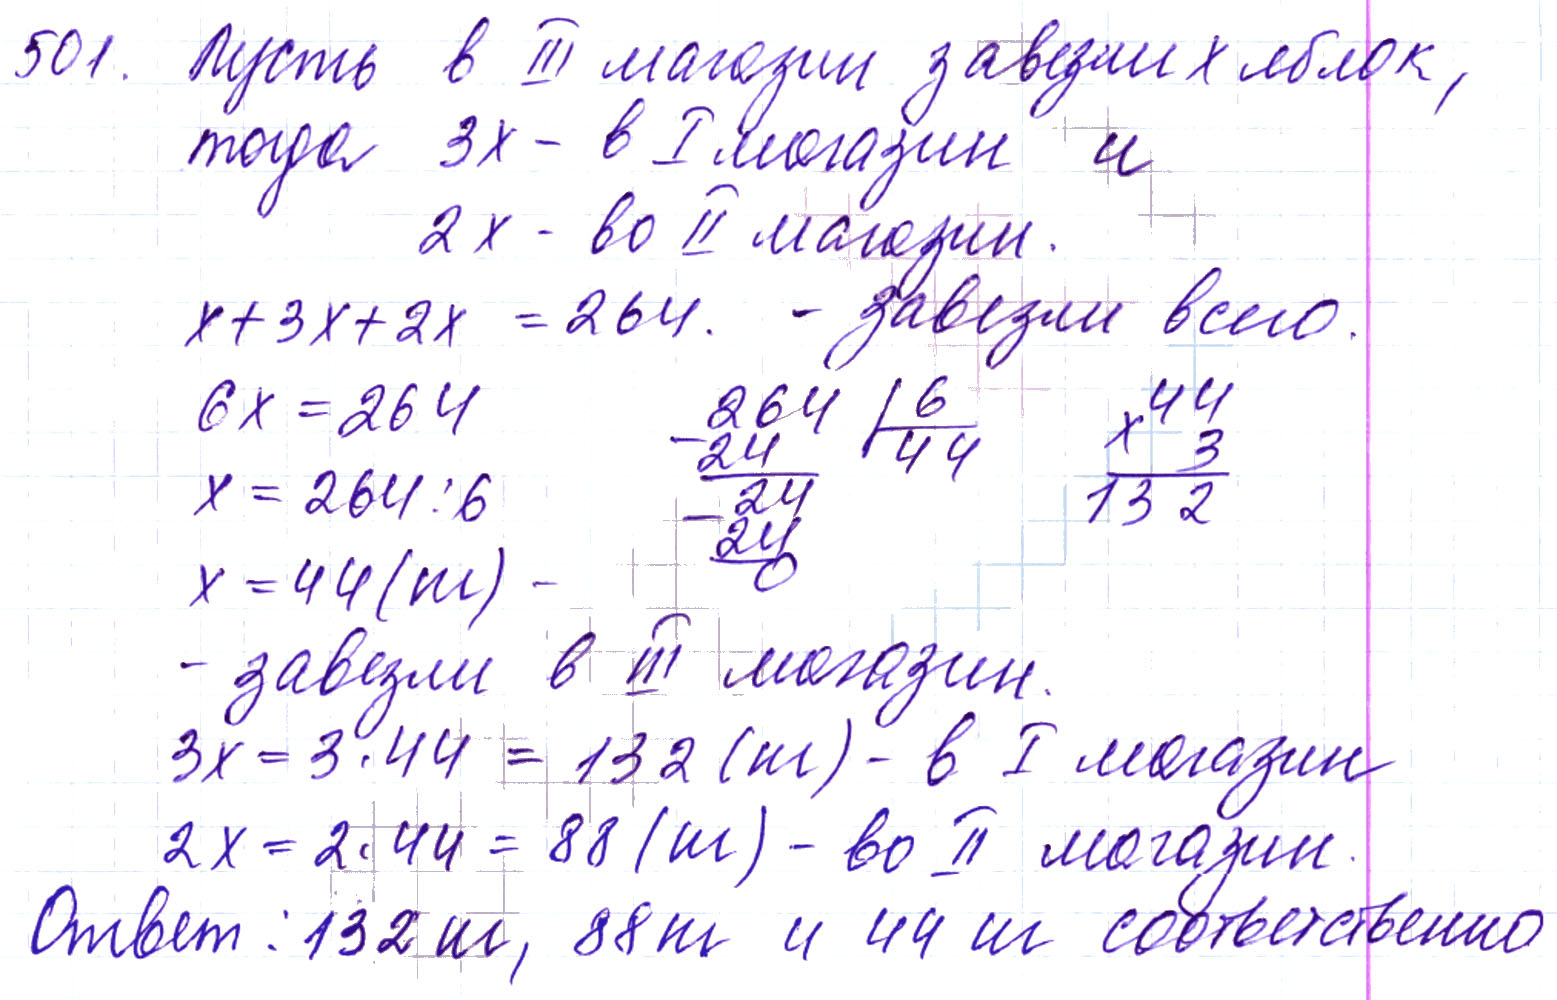 501. Пусть в III магазин завезли x яблок,
тогда 3x - в I магазин и
2x - во II магазин.
x+3x+2x = 264. - завезли всего.
6x = 264
x = 264:6
x = 44 (кг) -
264 | 6
- 24 44
24
- 24
0
44
x 3
132
- завезли в III магазин.
3x = 3·44 = 132 (кг) - в I магазин
2x = 2·44 = 88 (кг) - во II магазин.
Ответ: 132 кг, 88 кг и 44 кг соответственно